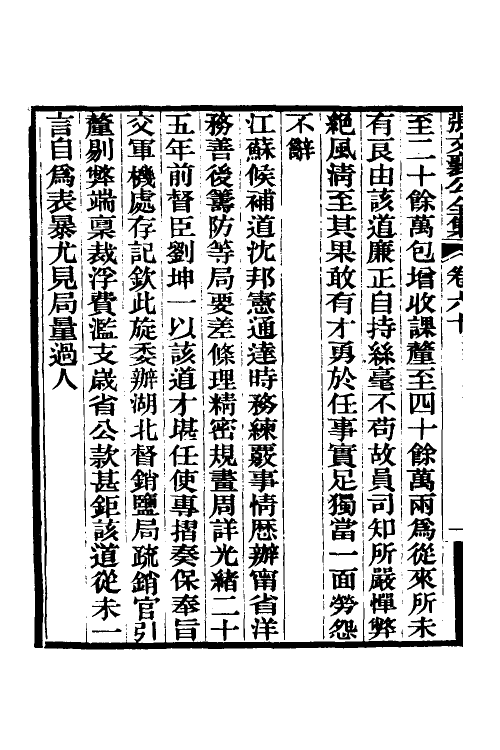 張文襄公全集 卷六十
至二十餘萬包增收課釐至四十餘萬兩爲從來所未
有良由該道廉正自持絲毫不苟故員司知所嚴憚弊
絕風淸至其果敢有才勇於任事實足獨當一面勞怨
不辭
江蘇候補道沈邦憲通達時務練覈事情歷辦甯省洋
務善後籌防等局要差條理精密規畫周詳光緒二十
五年前督臣劉坤一以該道才堪任使專摺奏保奉旨
交軍機處存記欽此旋委辦湖北督銷鹽局疏銷官引
釐剔弊端稟裁浮費濫支歲省公款甚鉅該道從未一
言自爲表暴尤見局量過人